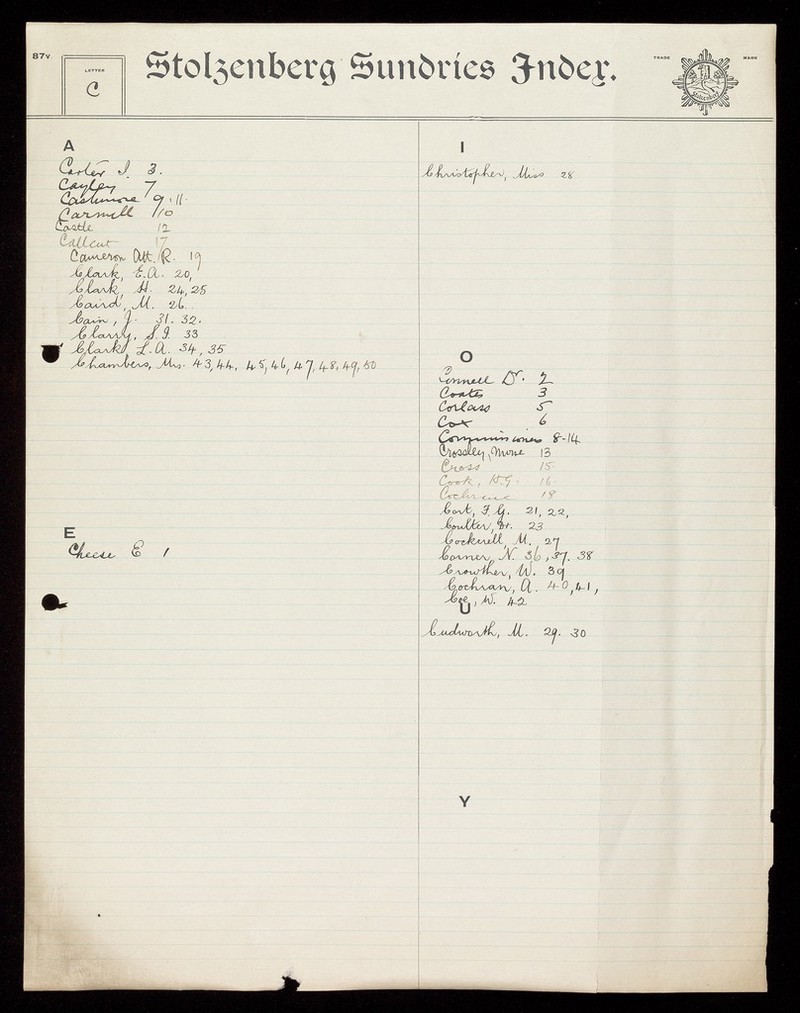 87v
LETTER
C
Stolzenberg Sundries Index.
TRADE MARK
Stolzenberg
A
Carter J. 3.
Cayley 7
Cashmore 9.11.
Carmell 10
Castle 12
Callcut 17
Cameron Att. R. 19
Clark, E.A. 20,
Clark, H. 24,25
Caird, M. 26.
Cain, J. 31. 32.
Clarry, S.J. 33
Clark, L.A. 34, 35
Chambers, Mrs. 43,44, 45,46,47,48,49,50
E
Cheese E 1
I
Christopher, Miss 28
O
Connell Dr. 2
Coates 3
Corlass 5
Cox 6
Commissioners 8-14
Crossley, 13
Cross 15.
Cook, H.G. 16.
Cochrane 18
Cort, F.G. 21, 22,
Coulter, Dr. 23
Cockerell, M. 27
Corner, N. 36, 37. 38
Crowther, W. 39
Cochran, A. 40,41,
Coe, W. 42
U
Cudworth, M. 29. 30
Y